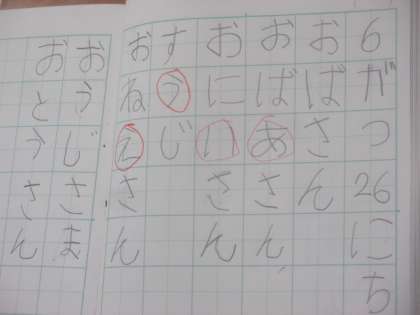 6がつ26にち
おばさん
おばあさん
おにいさん
すうじ
おねえさん
おうじさま
おとうさん